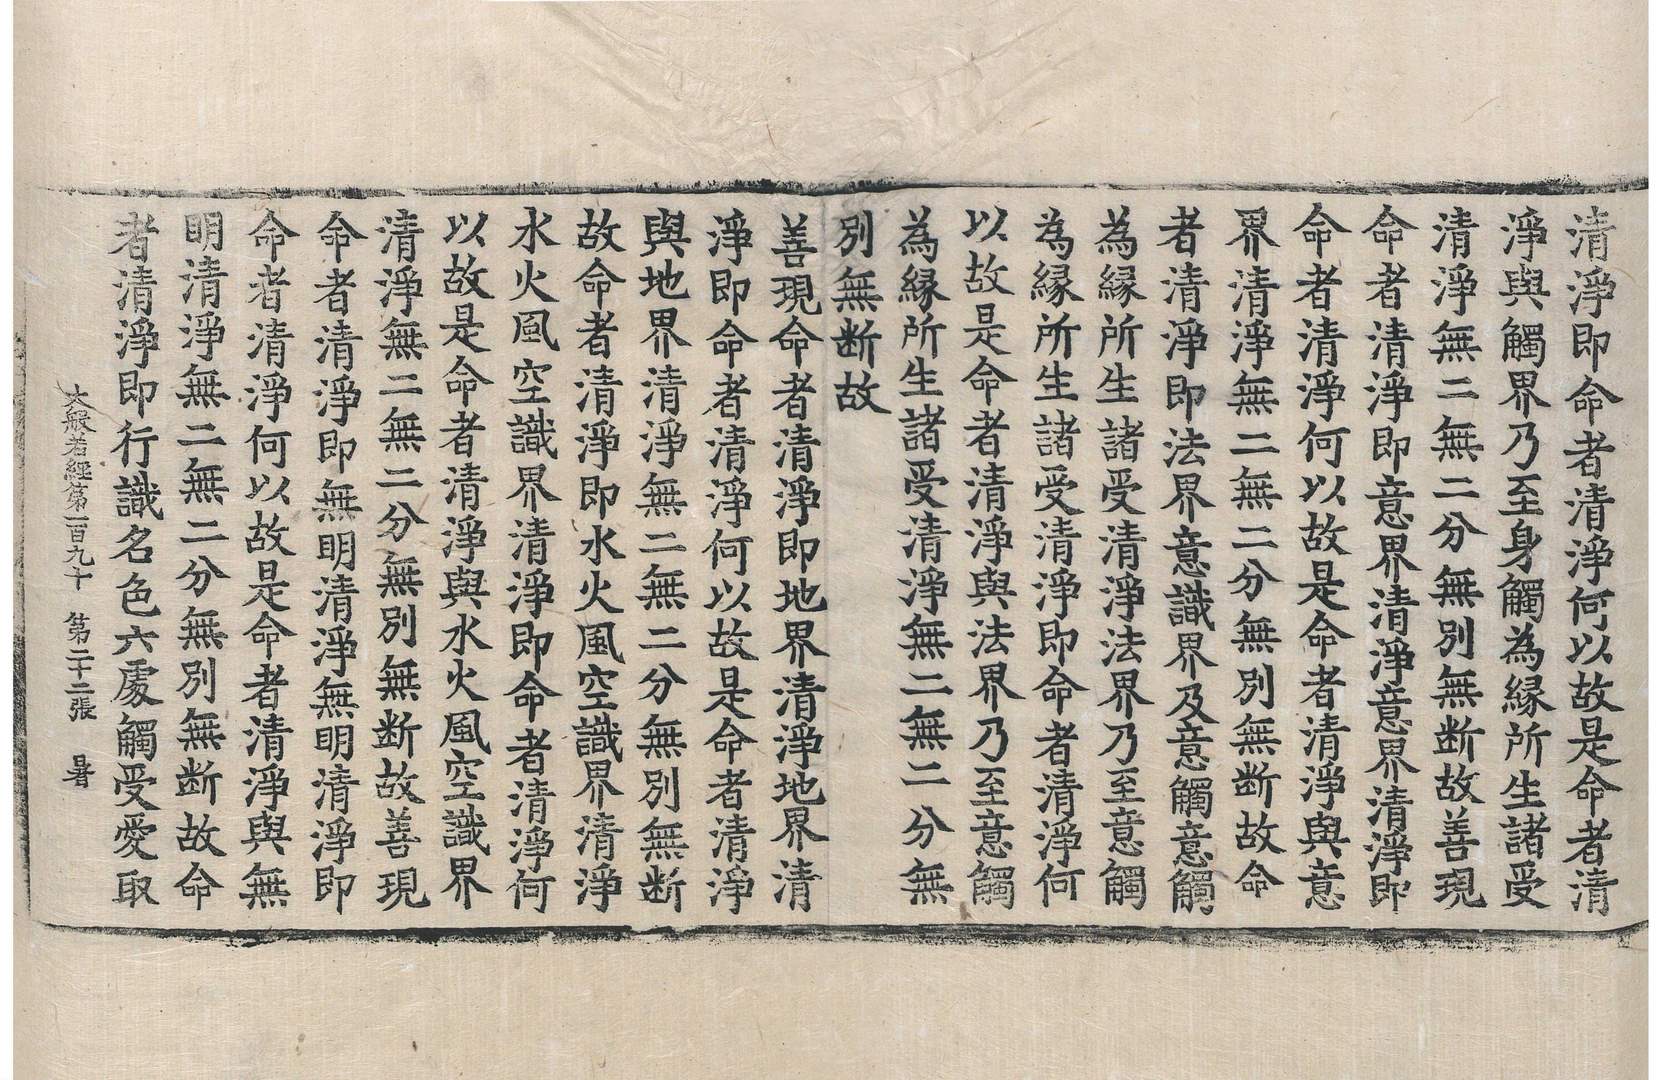 清淨即命者清淨何以故是命者清
淨與觸界乃至身觸為縁所生諸受
清淨無二無二分無別無断故善現
命者清淨即意界清淨意界清淨即
命者清淨何以故是命者清淨與意
界清淨無二無二分無別無断故命
者清淨即法界意識界及意觸意觸
為縁所生諸受清淨法界乃至意觸
為縁所生諸受清淨即命者清淨何
以故是命者清淨與法界乃至意觸
為縁所生諸受清淨無二無二分無
別無断故
善現命者清淨即地界清淨地界清
淨即命者清淨何以故是命者清淨
與地界清淨無二無二分無別無断
故命者清淨即水火風空識界清淨
水火風空識界清淨即命者清淨何
以故是命者清淨與水火風空識界
清淨無二無二分無別無断故善現
命者清淨即無明清淨無明清淨即
命者清淨何以故是命者清淨與無
明清淨無二無二分無別無断故命
者清淨即行識名色六處觸受愛取
大般若經第一百九十 第二十二張 暑